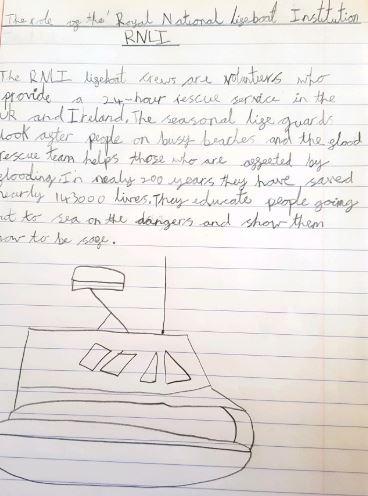 The role of the Royal National lifeboat Institution
RNLI
The RNLI lifeboat crews are volunteers who
provide a 24-hour rescue service in the
UK and Ireland. The seasonal life guards
look after people on busy beaches and the flood
rescue team helps those who are affected by
flooding. In nealy 200 years they have saved
nearly 143000 lives. They educate people going
out to sea on the dangers and show them
how to be safe.